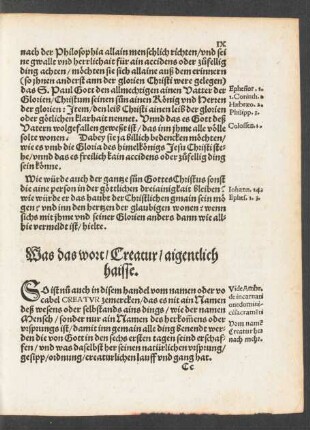 IX
nach der Philosophia allain menschlich richten/ vnd sei
ne gwallt vnd herrlichait für ain accidens oder zůfellig
ding achten/ möchten sie sich allaine auß dem erinnern
(so jhnen anderst ann der glorien Christi were gelegen)
das S. Paul Gott den allmechtigen ainen Vatter der
Glorien/ Christum seinen sůn ainen König vnd Herren
der glorien: Item/ den leib Christi ainen leib der glorien
oder götlichen klarhait nennet. Vnnd das es Gott deß
Vatern wolgefallen geweßt ist/ das inn jhme alle völle
solte wonen. Dabey sie ja billich bedencken möchten/
wie es vmb die Gloria des himelkönigs Jesu Christi ste-
he/ vnnd das es freilich kain accidens oder zůfellig ding
sein könne.
Ephesier. 1.
1. Corinth. 2
Hæbreo. 2.
Philipp. 3.
Colossen. 1.
Wie würde auch der gantze sůn Gottes Christus (onst
die aine person in der götlichen dreiainigkait bleiben?
wie würde er das haubt der Christlichen gmain sein mö
gen? vnd inn den hertzen der glaubigen wonen? wenn
sichs mit jhme vnd seiner Glorien anders dann wie all-
hie vermeldt ist/ hielte.
Iohann. 14.
Ephes. 1. 3.
Was das wort/ Creatur/ aigentlich
haisse.
SO ist nů auch in disem handel vom namen oder vo
cabel CREATVR zemercken/ das es nit ain Namen
deß wesens oder selbstands ains dings/ wie der namen
Mensch/ sonder nur ain Namen des herkom̃ens oder
vrsprungs ist/ damit inn gemain alle ding benendt wer-
den die von Gott in den sechs ersten tagen seind erschaf-
fen/ vnd was daselbst her seinen natürlichen vrsprung/
gesipp/ ordnung/ creatürlichen lauff vnd gang hat.
Vom namẽ
Creatur her
nach mehr.
Cc